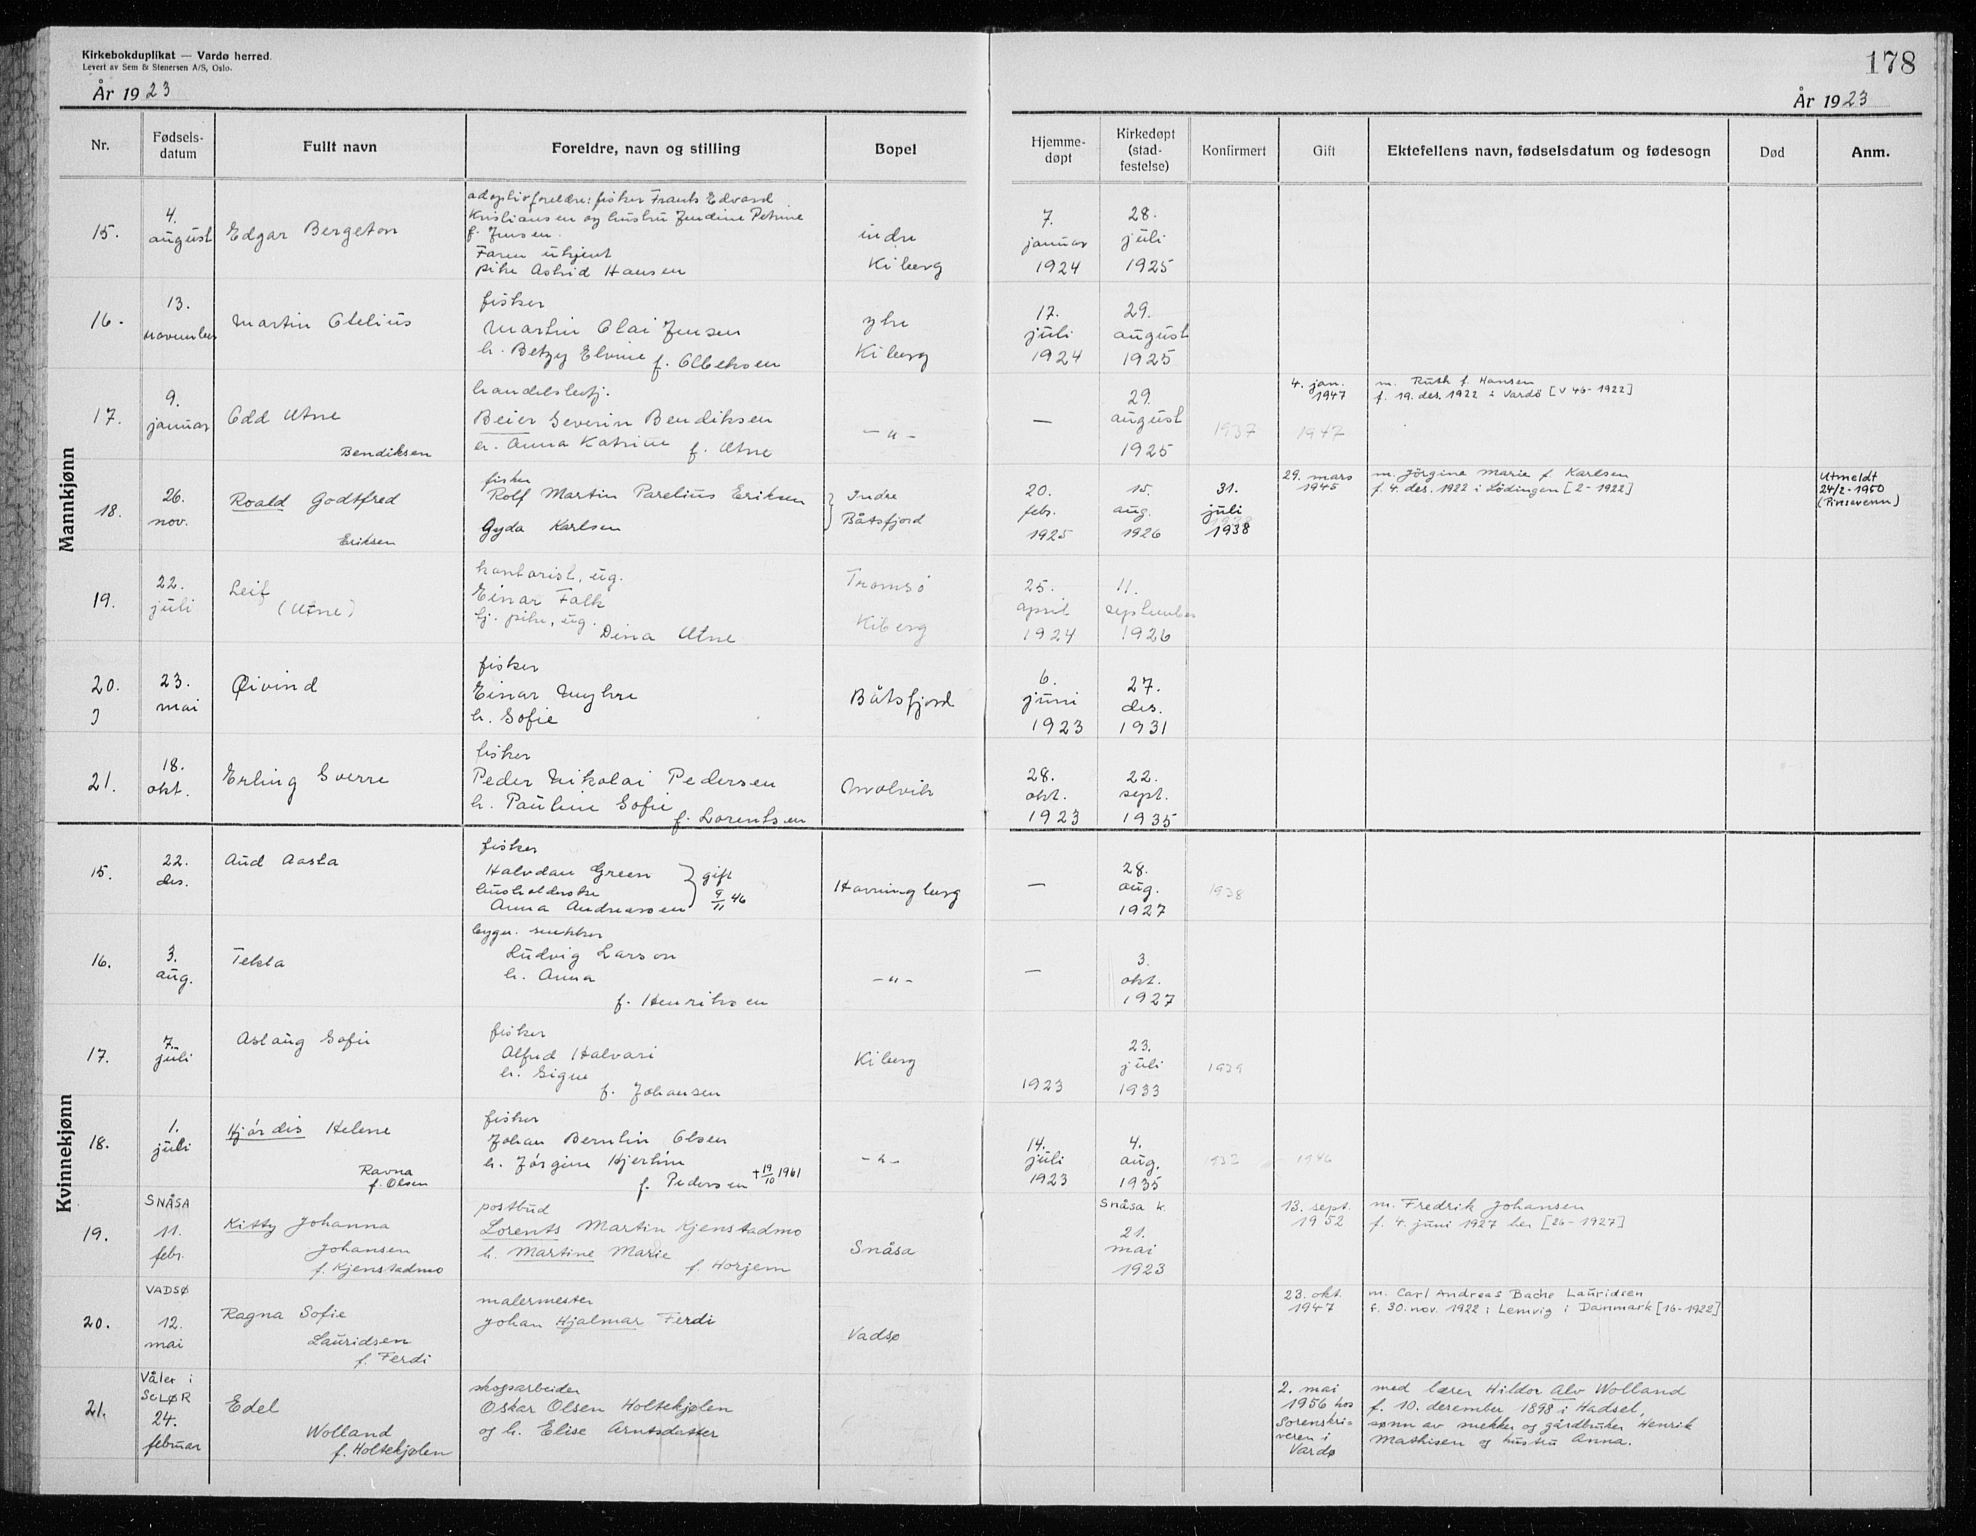 Kirkebokduplikat — Vardø herred.
Levert av Sem & Stenersen A/S, Oslo.
År 1923
178
År 1923
Nr.
Fødsels-
datum
Fullt navn
Foreldre, navn og stilling
Bopel
Hjemme-
døpt
Kirkedøpt
(stad-
festelse)
Konfirmert
Gift
Ektefellens navn, fødselsdatum og fødesogn
Død
Anm.
Mannkjønn
15.
4.
august
Edgar Bergeton
adoptivforeldre: fisker Frants Edvard
Kristiansen og hustru Jendine Petrine
f. Jensen.
Faren ukjent
pike Astrid Hansen
indre
Kiberg
7.
januar
1924
28.
juli
1925
16.
13.
november
Martin Otelius
fisker
Martin Olai Jensen
h. Betzy Elvine f. Olbeksen
ytre
Kiberg
17.
juli
1924
29.
august
1925
17.
9.
januar
Odd Utne
Bendiksen
handelsbetj.
Beier Severin Bendiksen
h. Anna Katrine f. Utne
— " —
—
29.
august
1925
1937
4. jan.
1947
1947
m. Ruth f. Hansen
f. 19. des. 1922 i Vardö [V 46-1922]
18.
26.
nov.
Roald Godtfred
Eriksen
fisker
Rolf Martin Parelius Eriksen
Gyda Karlsen
Indre
Båtsfjord
20.
febr.
1925
15.
aug.
1926
31.
juli
1938
29. mars
1945
m. Jörgine Marie f. Karlsen
f. 4. des. 1922 i Lödingen [2-1922]
Utmeldt
24/2-1950
(Pinsevenn)
19.
22.
juli
Leif
(Utne)
kontorist, ug.
Einar Falk
tj. pike, ug.
Dina Utne
Tromsö
Kiberg
25.
april
1924
11.
september
1926
20.
J
23.
mai
Øivind
fisker
Einar Myhre
h. Sofie
Båtsfjord
6.
juni
1923
27.
des.
1931
21.
18.
okt.
Erling Sverre
fisker
Peder Nikolai Pedersen
h. Pauline Sofie
f. Lorentsen
Molvik
28.
okt.
1923
22.
sept.
1935
Kvinnekjønn
15.
22.
des.
Aud Aasta
fisker
Halvdan Green
husholderske
Anna Andreassen
gift
9/11 46
Havningberg
—
28.
aug.
1927
1938
16.
3.
aug.
Tekla
bygn. snekker
Ludvig Larson
h. Anna
f. Henriksen
— " —
—
3.
okt.
1927
17.
7.
juli
Aslaug Sofie
fisker
Alfred Halvari
h. Signe
f. Johansen
Kiberg
1923
23.
juli
1933
1939
18.
1.
juli
Hjördis Helene
Ravna
f. Olsen
fisker
Johan Berntin Olsen
h. Jörgine Hjertine
f. Pedersen +19/10 1961
— " —
14.
juli
1923
4.
aug.
1935
1946
SNÅSA
19.
11.
febr.
Kitty Johanna
Johansen
f. Kjenstadmo
postbud
Lorents Martin Kjenstadmo
h. Martine Marie
f. Horjem
Snåsa
Snåsa k.
21.
mai
1923
13. sept.
1952
m. Fredrik Johansen
f. 4. juni 1927 her [26-1927]
VADSØ
20.
12.
mai
Ragna Sofie
Lauridsen
f. Ferdi
malermester
Johan Hjalmar Ferdi
Vadsø
23. okt.
1947
m. Carl Andreas Bache Lauridsen
f. 30. nov. 1922 i Lemvig i Danmark [16-1922]
Våler i
SOLØR
21.
24.
februar
Edel
Wolland
f. Holtekjølen
skogsarbeider
Oskar Olsen Holtekjølen
og h. Elise Arntsdatter
2. mai
1956 hos
Sorenskri-
veren i
Vardø
med lærer Hildor Alv Wolland
f. 10. desember 1898 i Hadsel,
sønn av snekker og gårdbruker Henrik
Mathisen og hustru Anna.